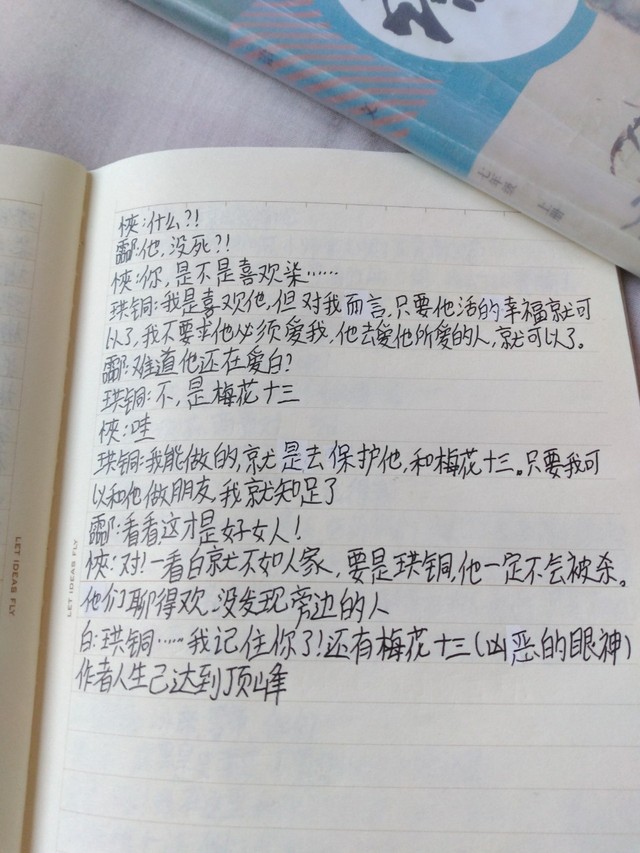 七年级 上册
侠:什么?!
酃:他,没死?!
侠:你,是不是喜欢柒……
珙铜:我是喜欢他,但对我而言,只要他活的幸福就可
以了,我不要求他必须爱我,他去爱他所爱的人,就可以了。
酃:难道他还在爱白?
珙铜:不,是梅花十三
侠:哇
珙铜:我能做的,就是去保护他,和梅花十三。只要我可
以和他做朋友,我就知足了
酃:看看这才是好女人!
侠:对!一看白就不如人家,要是珙铜,他一定不会被杀。
他们聊得欢,没发现旁边的人
白:珙铜……我记住你了!还有梅花十三(凶恶的眼神)
作者人生已达到顶峰
LET IDEAS FLY
LET IDEAS FLY